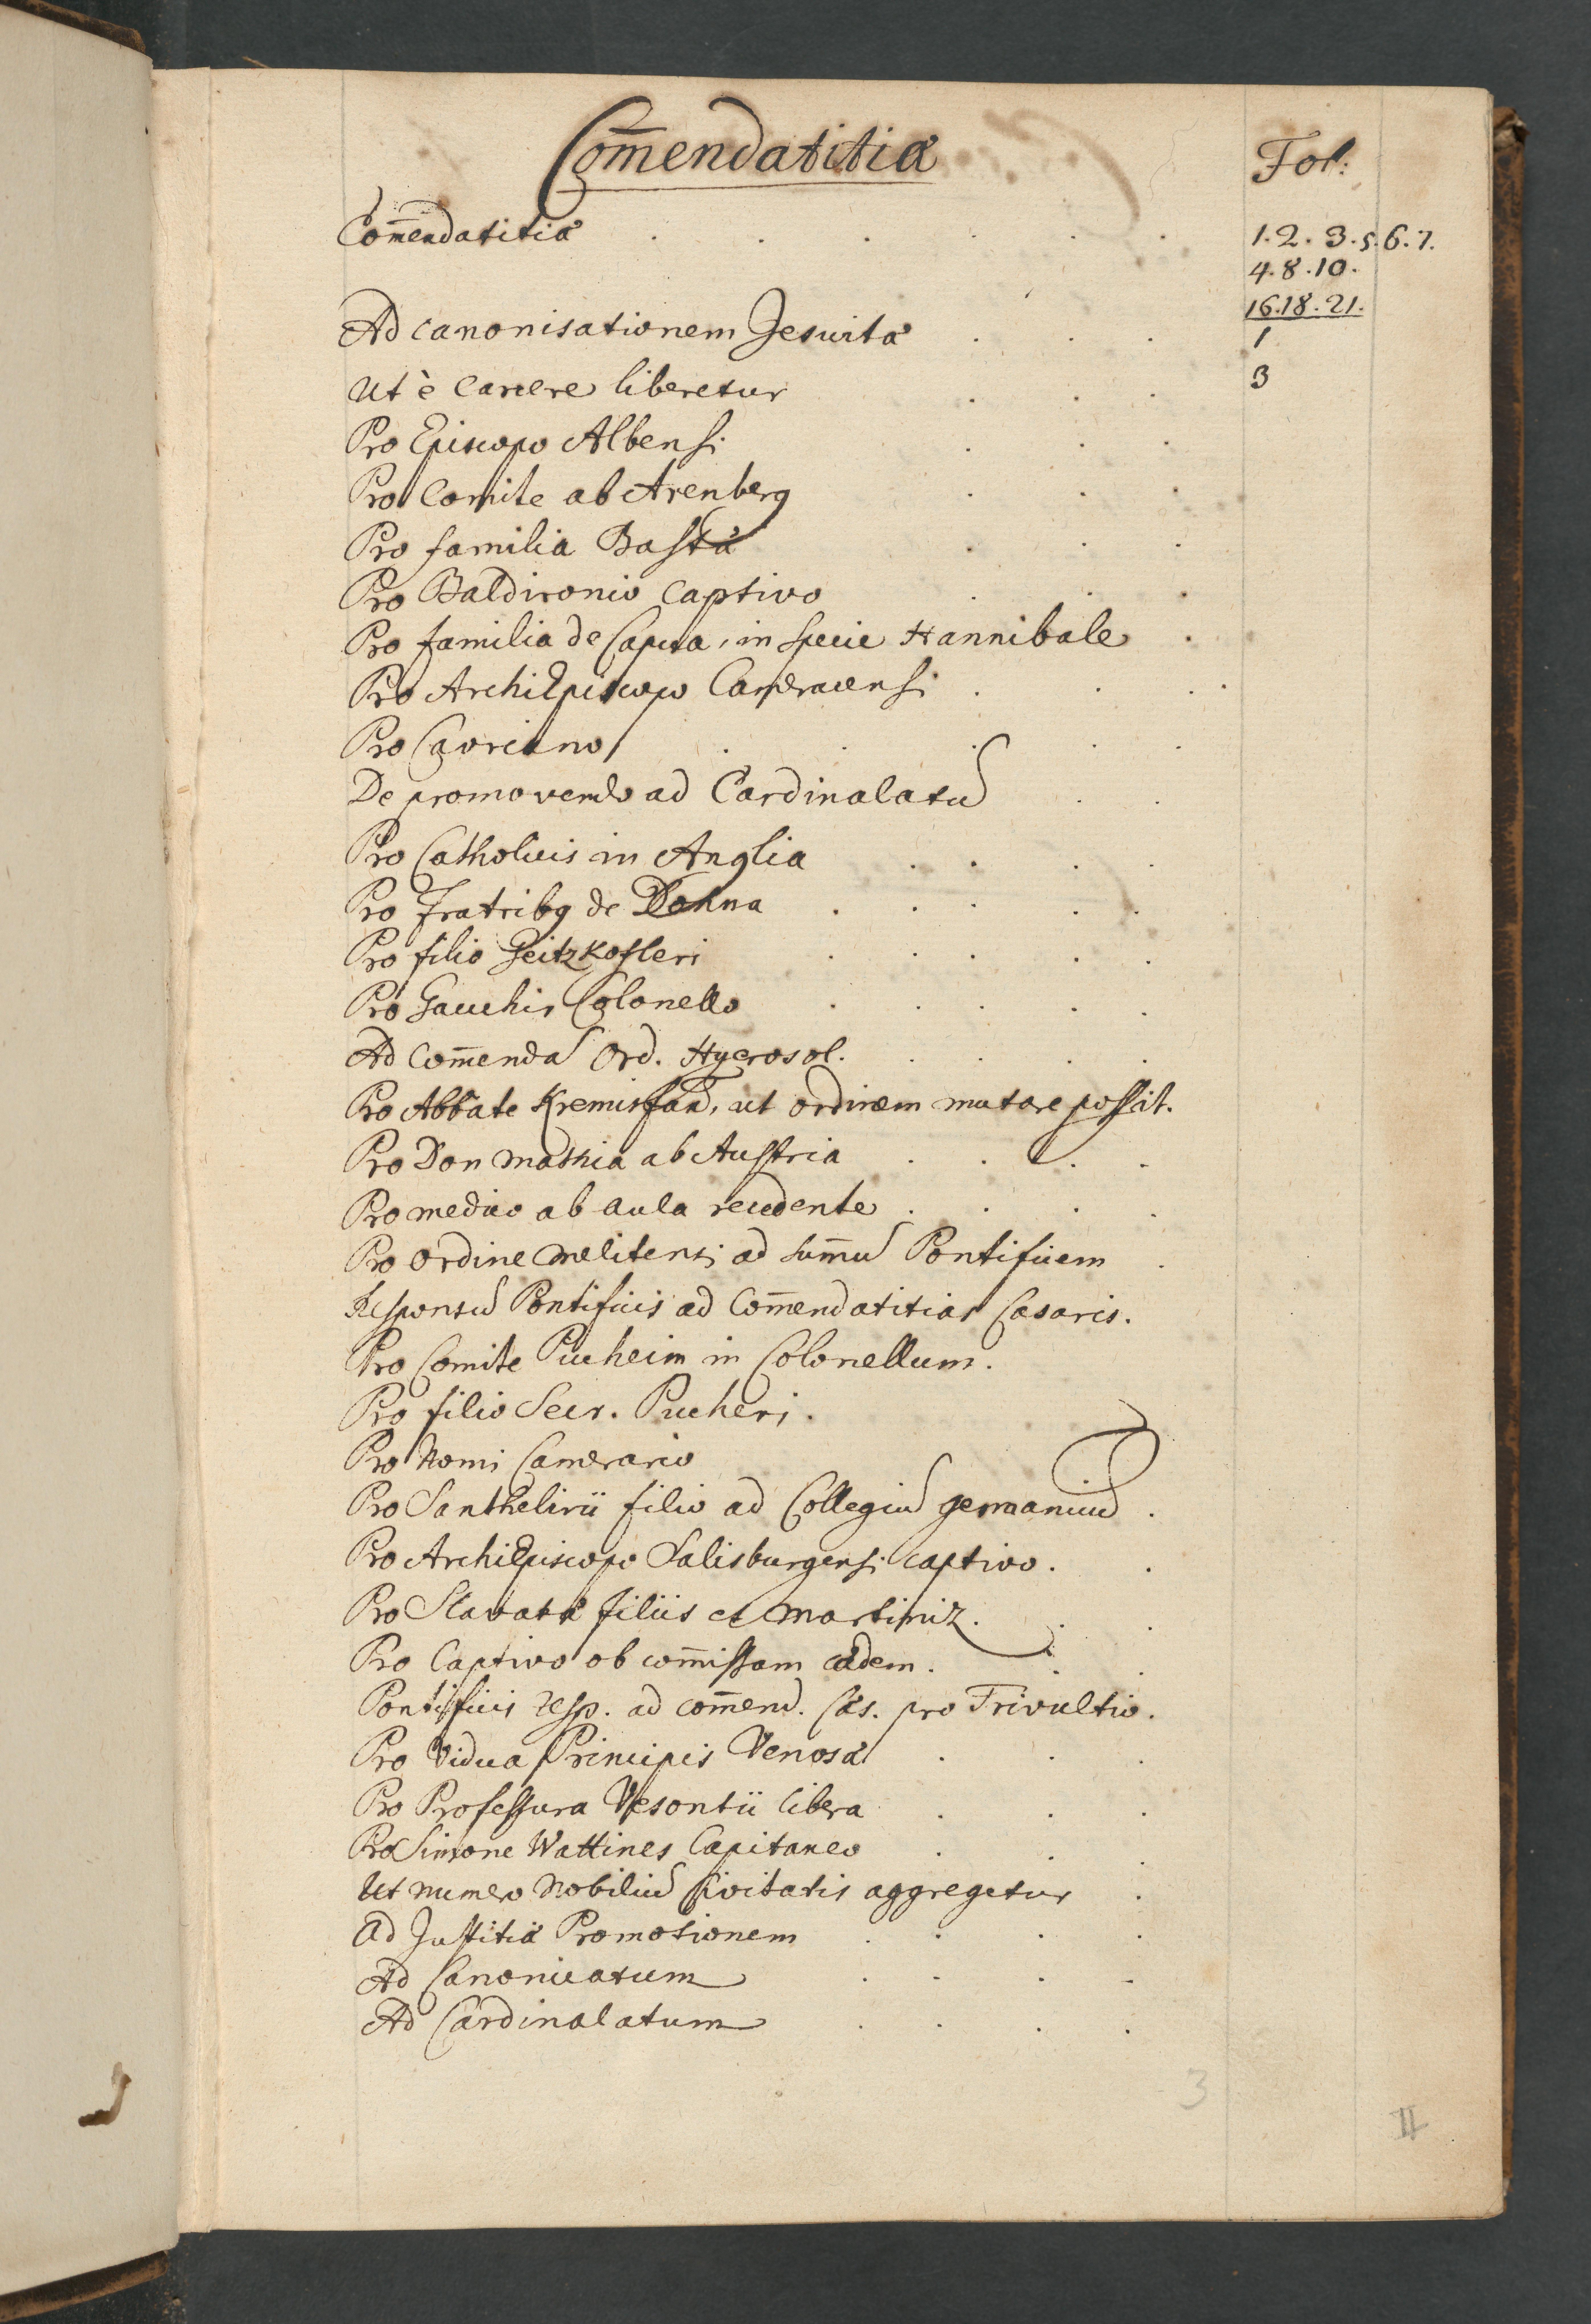 Com̄endatitiæ
Fol:
Com̄endatitiæ . . . . . . 1. 2. 3. 5. 6. 7.
4. 8. 10.
16. 18. 21.
Ad canonisationem Jesuitæ . . . 1
Ut è Carcere liberetur . . . 3
Pro Episcopo Albensi . . .
Pro Comite ab Arenberg . . .
Pro familia Bastæ . . .
Pro Baldironio captivo . . .
Pro familia de Capua, in specie Hannibale .
Pro ArchiEpiscopo Cameracensi . . .
Pro Cavriano . . . . .
De promovendo ad Cardinalatū . .
Pro Catholicis in Anglia . . . .
Pro Fratribq de Dohna . . . . .
Pro filio Geitzkofleri . . . . .
Pro Gauchir Colonello . . . . .
Ad Com̄endā Ord. Hyerosol. . . . .
Pro Abbate Kremisfan̄, ut ordinem mutare possit.
Pro Don Mathia ab Austria . . . .
Pro medico ab aula recedente . . . .
Pro Ordine Melitensi ad sum̄ū Pontificem .
Responsū Pontificis ad Com̄endatitias Cæsaris.
Pro Comite Pucheim in Colonellum.
Pro filio Secr. Pucheri.
Pro Nomi Camerario
Pro Santhelirii filio ad Collegiū germanicū .
Pro ArchiEpiscopo Salisburgensi captivo. .
Pro Slavatæ filiis et Martiniz. . .
Pro Captivo ob com̄issam cædem. . .
Pontificis resp. ad com̄end. Cæs. pro Trivultio.
Pro Vidua Principis Venosæ . . .
Pro Professura Vesontii libera . . .
Pro Simone Wattines Capitaneo . . .
Ut numero Nobiliū Civitatis aggregetur .
Ad Justitiæ Promotionem . . . .
Ad Canonicatum . . . .
Ad Cardinalatum . . . .
3
II